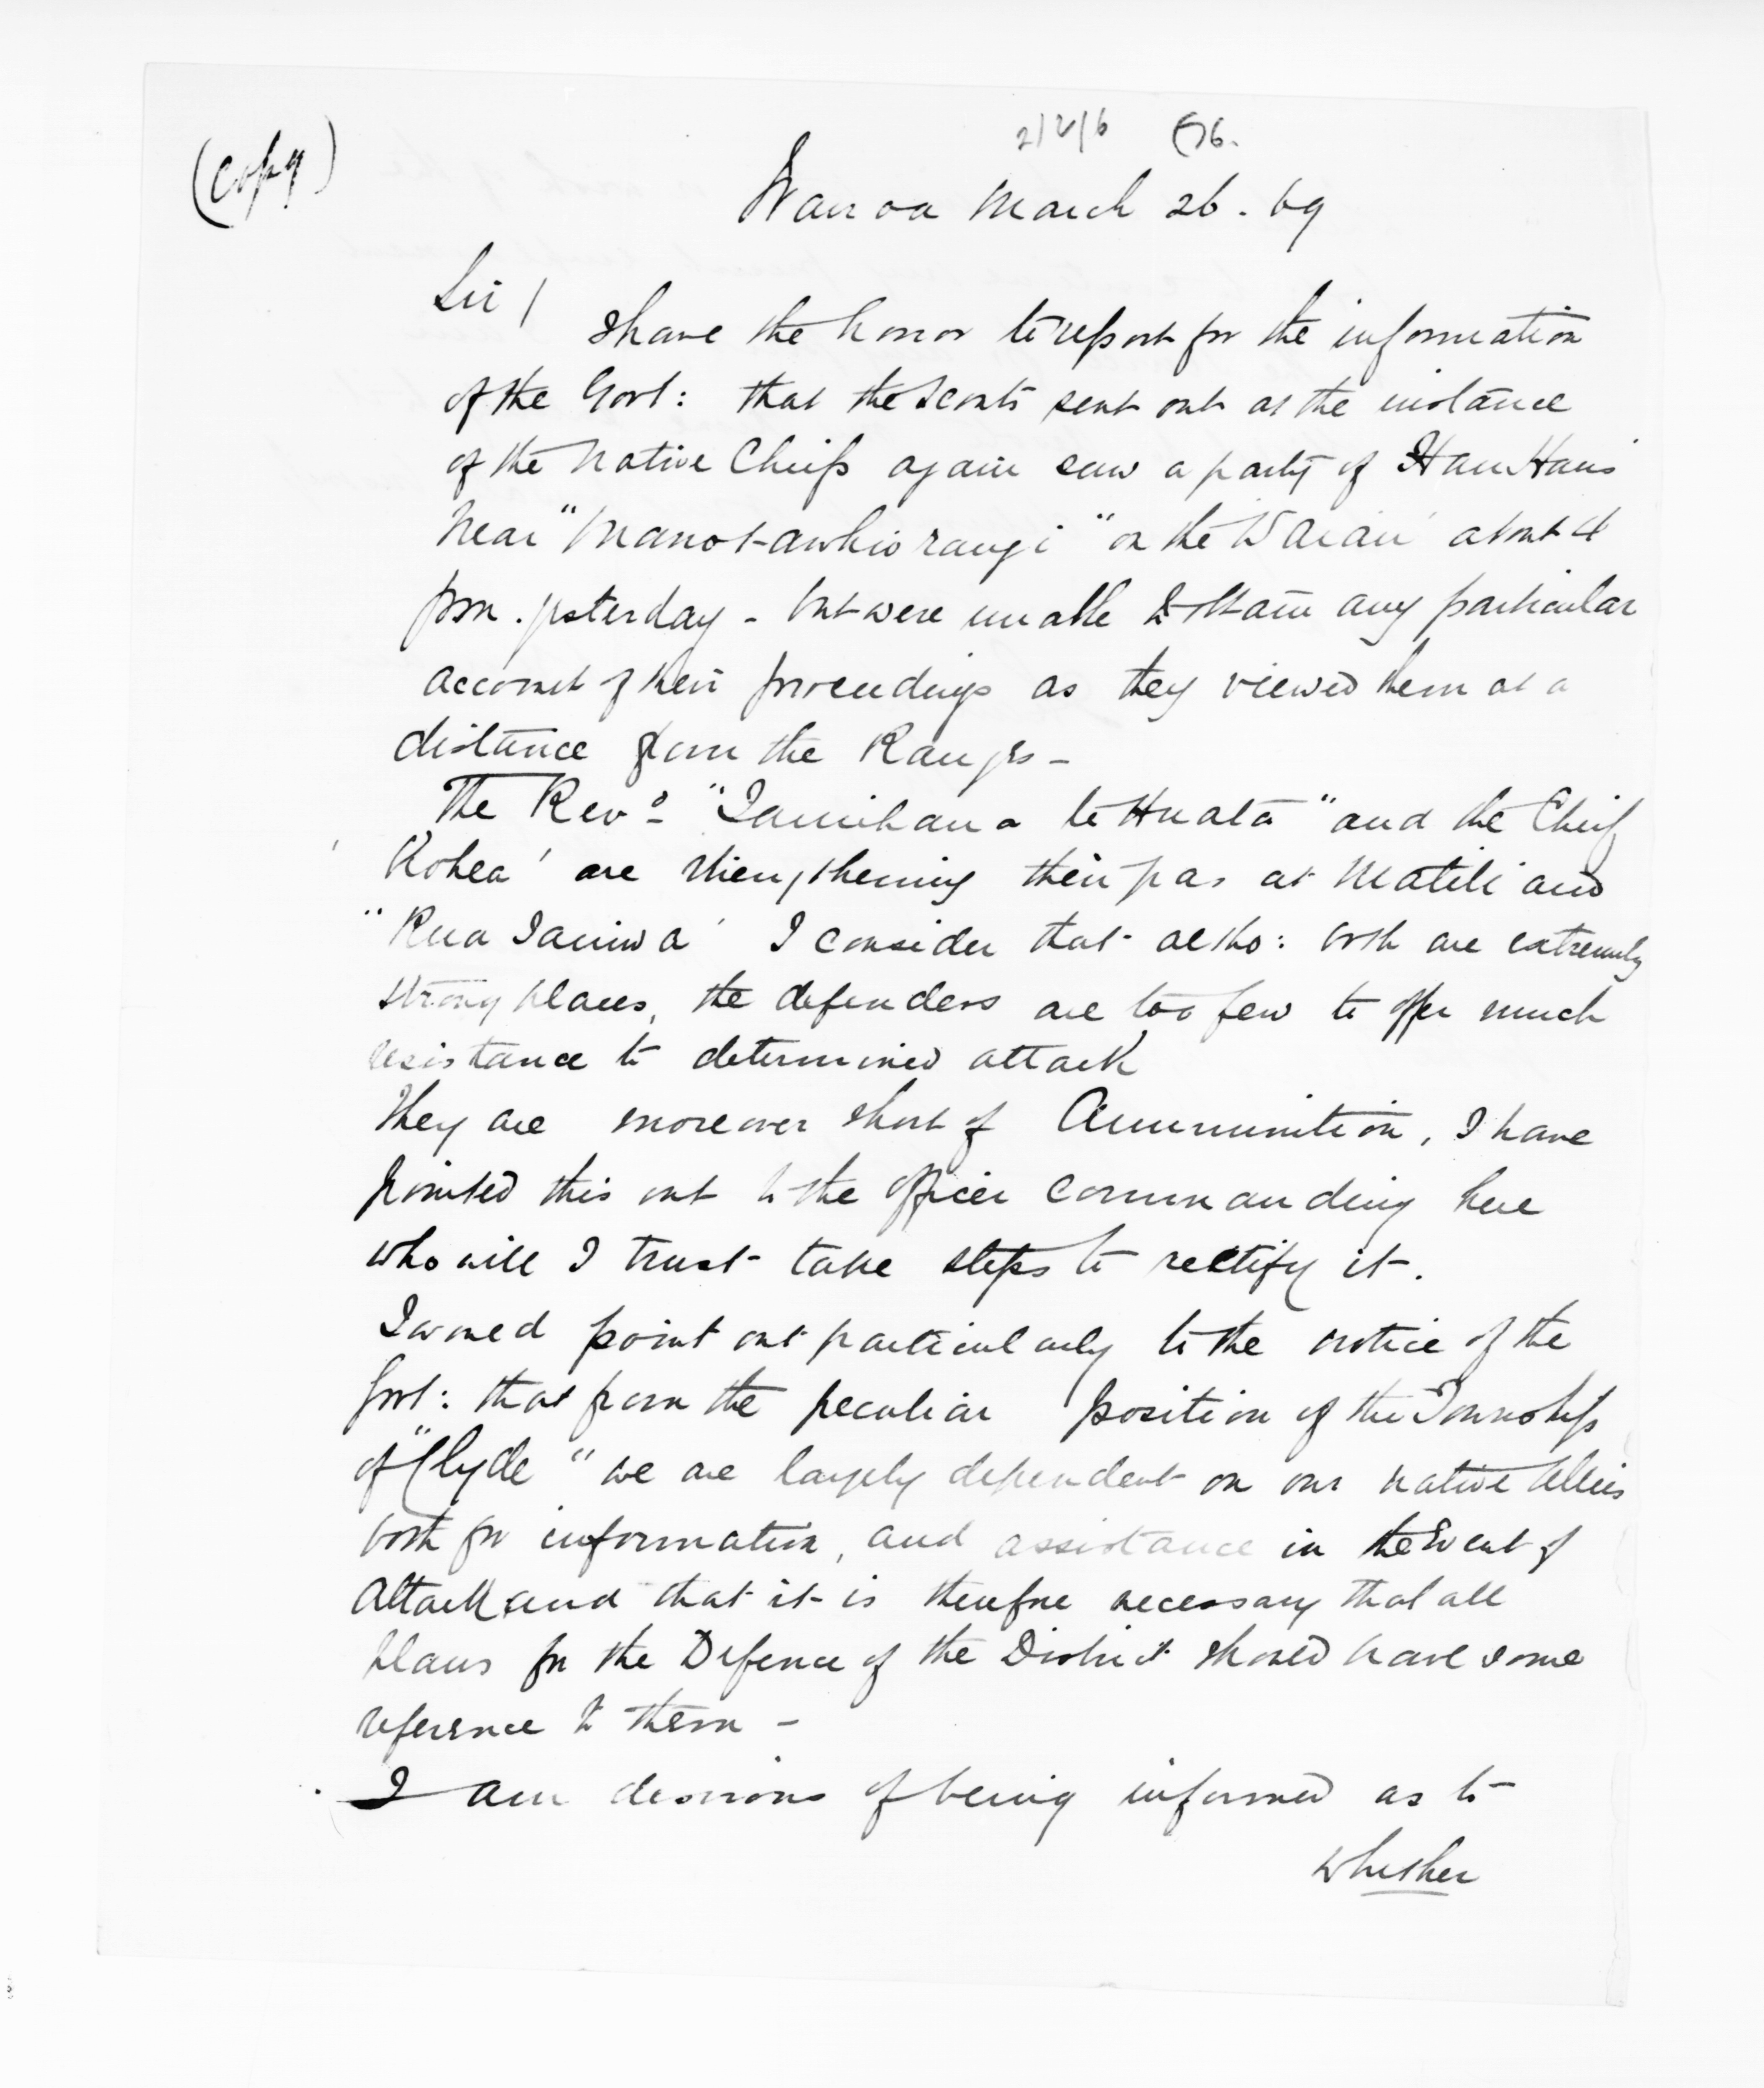 (Copy)
2/2/6 676.
Wairoa March 26. 69
Sir /
I have the honor to report for the information
of the Govt: that the Scouts sent out at the instance
of the Native Chiefs again saw a party of Hau Haus
near "Manot-awhio rangi" on the Waiau about 4
p.m. yesterday - but were unable to obtain any particular
account of their proceedings as they viewed them at a
distance from the Ranges -
The Revd "Tamihana te Huata" and the Chief
'Kohea' are strengthening their pas at Matiti and
"Rua Taniwa' I consider that altho: both are extremely
strong places, the defenders are too few to offer much
resistance to determined attack
They are moreover short of Ammunition, I have
pointed this out to the officer commanding here
who will I trust take steps to rectify it.
I would point out particularly to the notice of the
Govt: that from the peculiar position of the Township
of "Clyde" we are largely dependent on our native Allies
both for information, and assistance in the Event of
Attack and that it is therefore necessary that all
plans for the Defence of the District should have some
reference to them -
I am desirous of being informed as to
whether